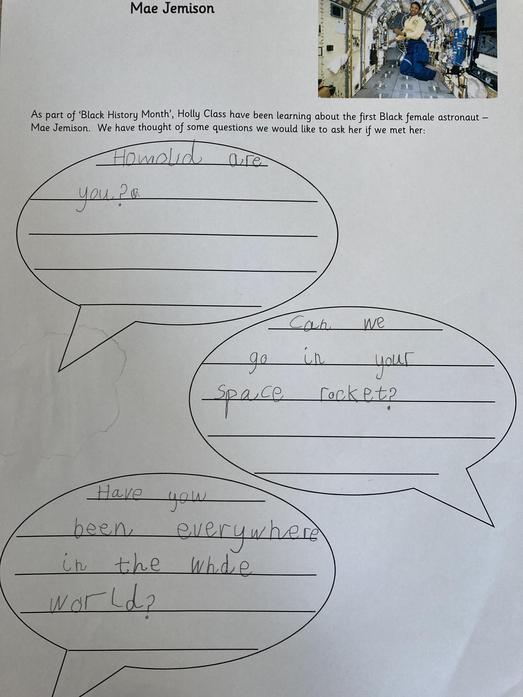 Mae Jemison
As part of 'Black History Month', Holly Class have been learning about the first Black female astronaut –
Mae Jemison. We have thought of some questions we would like to ask her if we met her:
Homolid are
you?
Can we
go in your
space rocket?
Have you
been everywhere
in the whole
world?